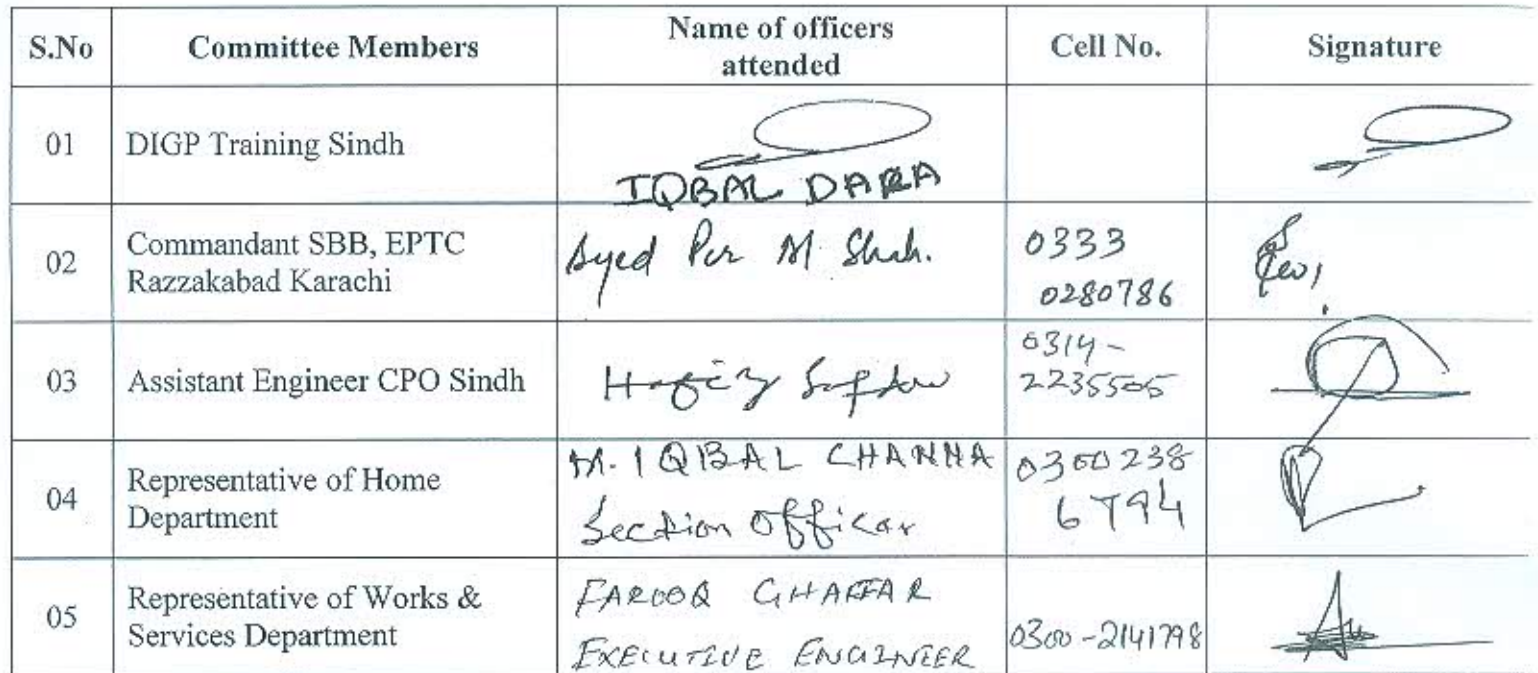 S.No Committee Members Name of officers attended Cell No. Signature
01 DIGP Training Sindh IQBAL DARA
02 Commandant SBB, EPTC Razzakabad Karachi Syed Per M Shah. 0333 0280786
03 Assistant Engineer CPO Sindh 0314- 2235505
04 Representative of Home Department M. IQBAL CHANNA Section Officer 0300 238 6794
05 Representative of Works & Services Department FAROOQ GHAFFAR EXECUTIVE ENGINEER 0300-2141798